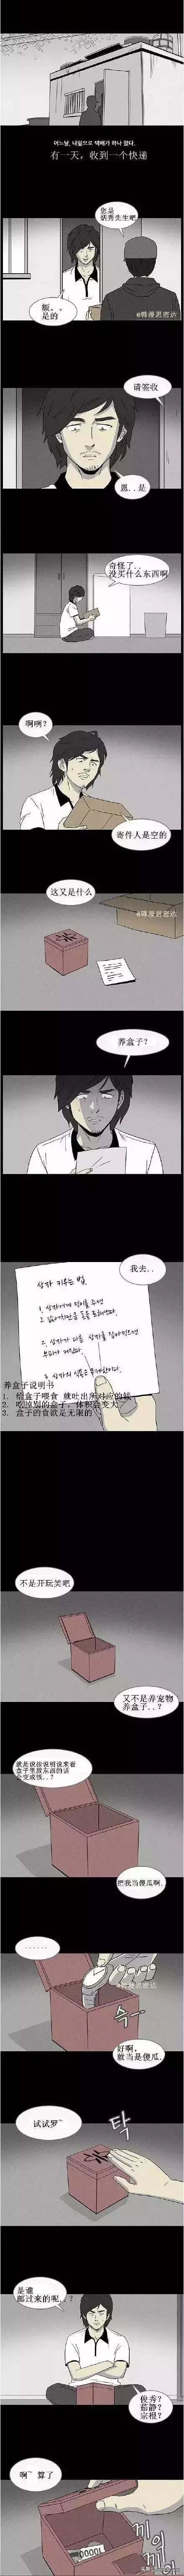 어느날, 내앞으로 택배가 하나 왔다.
有一天，收到一个快递
您是
炳秀先生吧
额。。
是的
@韩漫思密达
请签收
恩..是
奇怪了..
没买什么东西啊
啊咧?
寄件人是空的
这又是什么
@韩漫思密达
养盒子?
我去..
상자 키우는 법.
养盒子说明书
1. 给盒子喂食 就吐出所对应的钱
2. 吃掉别的盒子，体积会变大
3. 盒子的食欲是无限的
不是开玩笑吧
又不是养宠物
养盒子..?
就是说按说明说来看
盒子里放东西的话
会变成钱..?
把我当傻瓜啊.
......
스윽
好啊，
就当是傻瓜.
试试罗~
탁
是谁
邮过来的呢..?
俊秀?
茹静?
宗根?
啊~ 算了
10000
끼이익